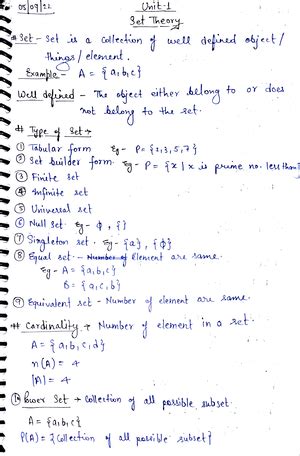 05/09/22
Unit-1
Set Theory
# Set - Set is a collection of well defined object/
things/element.
Example - A = {a,b,c}
Well defined - The object either belong to or does
not belong to the set.
# Type of Set →
① Tabular form Eg - P = {2,3,5,7}
② Set builder form Eg - P = {x | x is prime no. less than
③ Finite set
④ Infinite set
⑤ Universal set
⑥ Null Set Eg - ϕ, { }
⑦ Singleton set. Eg - {a}, {ϕ}
⑧ Equal set - Element are same.
Eg - A = {a,b,c}
B = {a,c,b}
⑨ Equivalent set - Number of element are same.
# Cardinality → Number of element in a set.
A = {a,b,c,d}
n(A) = 4
|A| = 4
⑩ Power Set → Collection of all possible subset.
A = {a,b,c}
P(A) = {Collection of all possible subset}